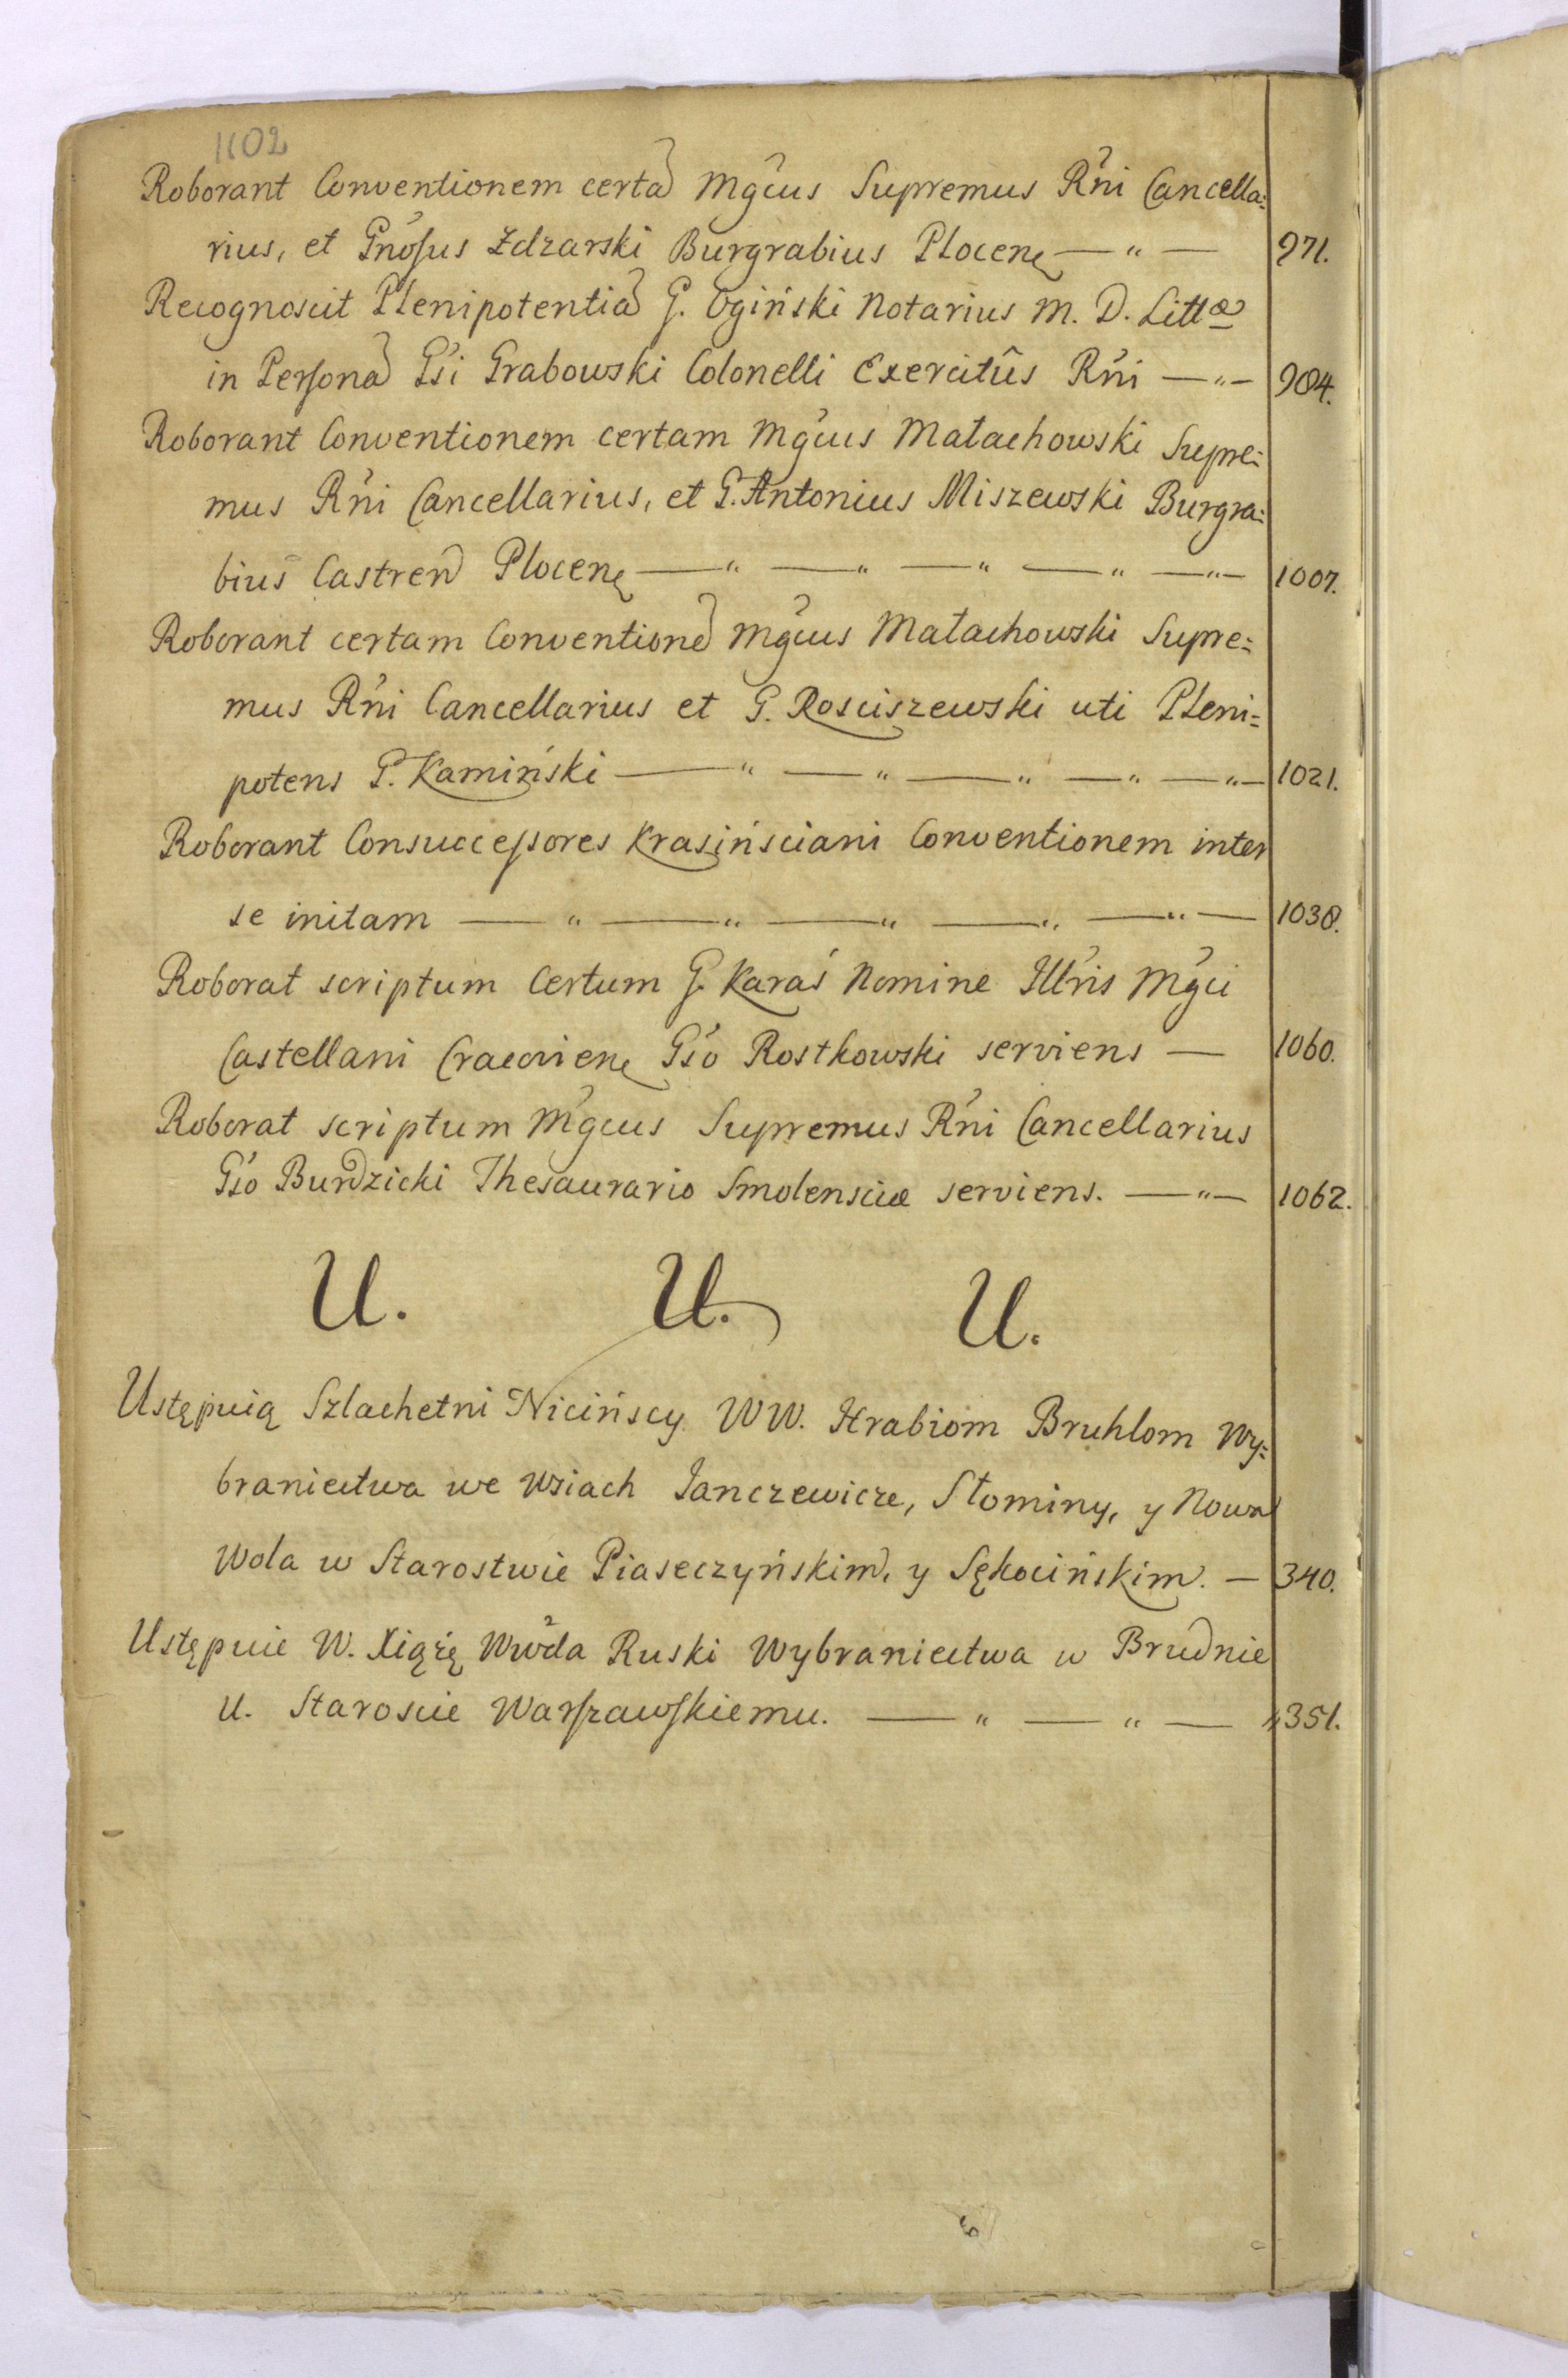 1102
Roborant Conventionem certã Mgcus Supremus Rni Cancella:
rius, et Gnosus Zdzarski Burgrabius Plocen — " — 971.
Recognoscit Plenipotentiã G. Ogiński Notarius M. D. Littæ
in Personã Gsi Grabowski Colonelli Exercitûs Rni — " — 984.
Roborant Conventionem certam Mgcus Małachowski Supre:
mus Rni Cancellarius, et G. Antonius Miszewski Burgra:
bius Castren Plocen — " — " — " — " — " — 1007.
Roborant certam Conventionẽ Mgcus Małachowski Supre:
mus Rni Cancellarius et G. Rosciszewski uti Pleni:
potens G. Kamiński — " — " — " — " — " — 1021.
Roborant Consuccessores Krasińsciani Conventionem inter
se initam — " — " — " — " — " — 1038.
Roborat scriptum certum G. Karaś Nomine Illris Mgci
Castellani Cracovien Gso Rostkowski serviens — 1060.
Roborat scriptum Mgcus Supremus Rni Cancellarius
Gso Burdzicki Thesaurario Smolensciæ serviens. — " — 1062.
U. U. U.
Ustępuią Szlachetni Nicińscy WW. Hrabiom Bruhlom Wy:
braniectwa we Wsiach Janczewicze, Słominy, y Nowa
Wola w Starostwie Piaseczyńskim, y Sękocińskim. — 340.
Ustępuie W. Xiążę Wwda Ruski Wybraniectwa w Brudnie
U. Staroscie Warszawskiemu. — " — " — " 351.